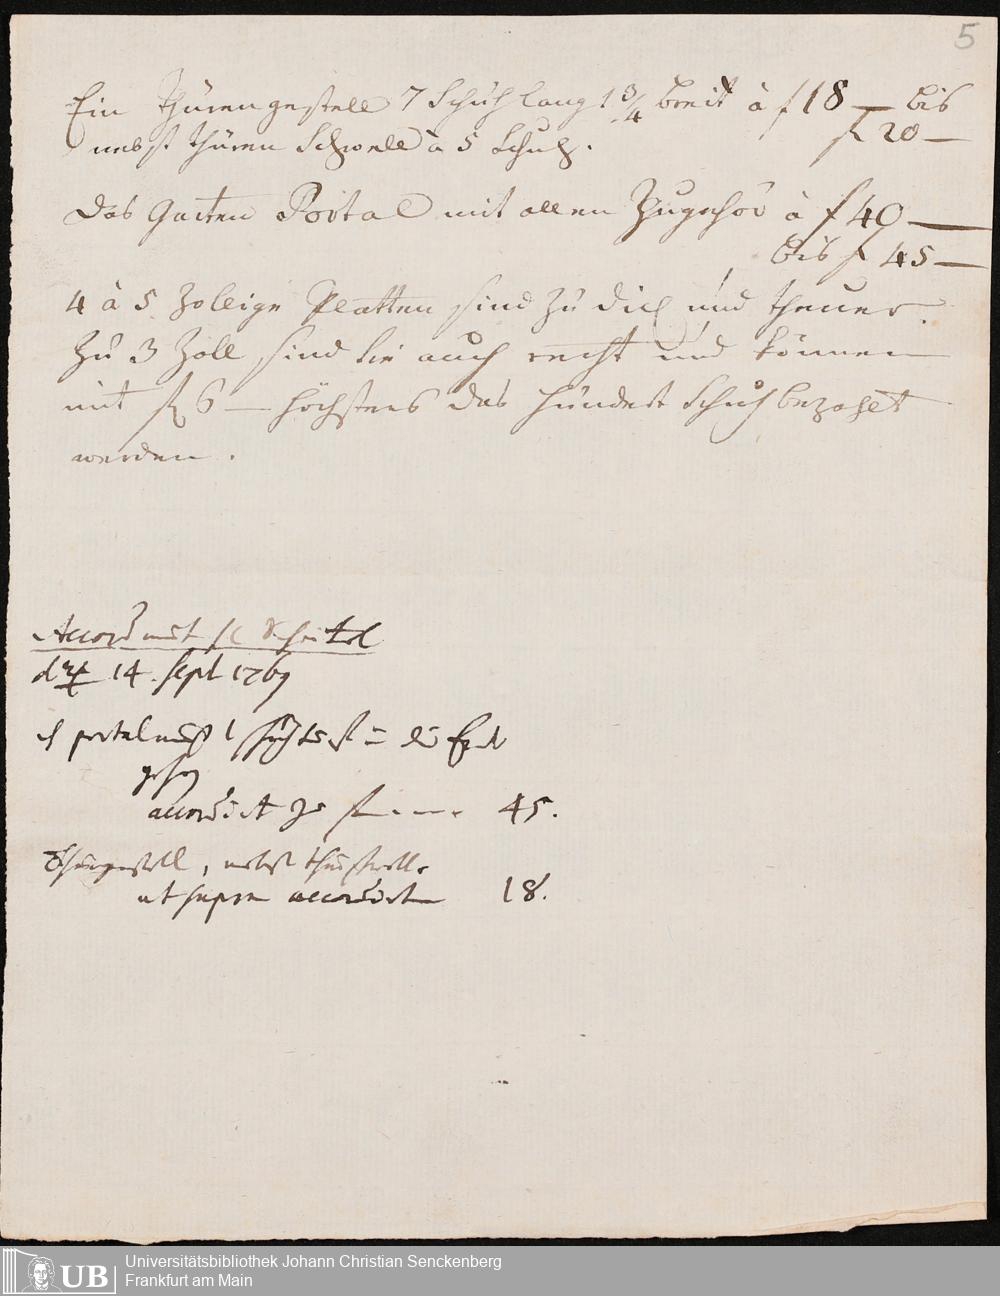 5
Ein Thürengestell 7 Schuh lang 1 3/4 breit à f 18 — bis
nebst Thüren Schwell à 5 Schuh. f 20 —
Das Garten Portal mit allen Zugehör à f 40 —
bis f 45 —
4 à 5 Zollige Platten sind zu dick und theuer.
Zu 3 Zoll sind Sie auch recht und können
mit f 6 — höchstens das hundert Schuh bezahlt
werden.
Accord mit
d 14. Sept 1769
portal
accordirt 45.
Thürgestell, nebst Thürschwell
ut supra accordirt 18.
UB Universitätsbibliothek Johann Christian Senckenberg
Frankfurt am Main